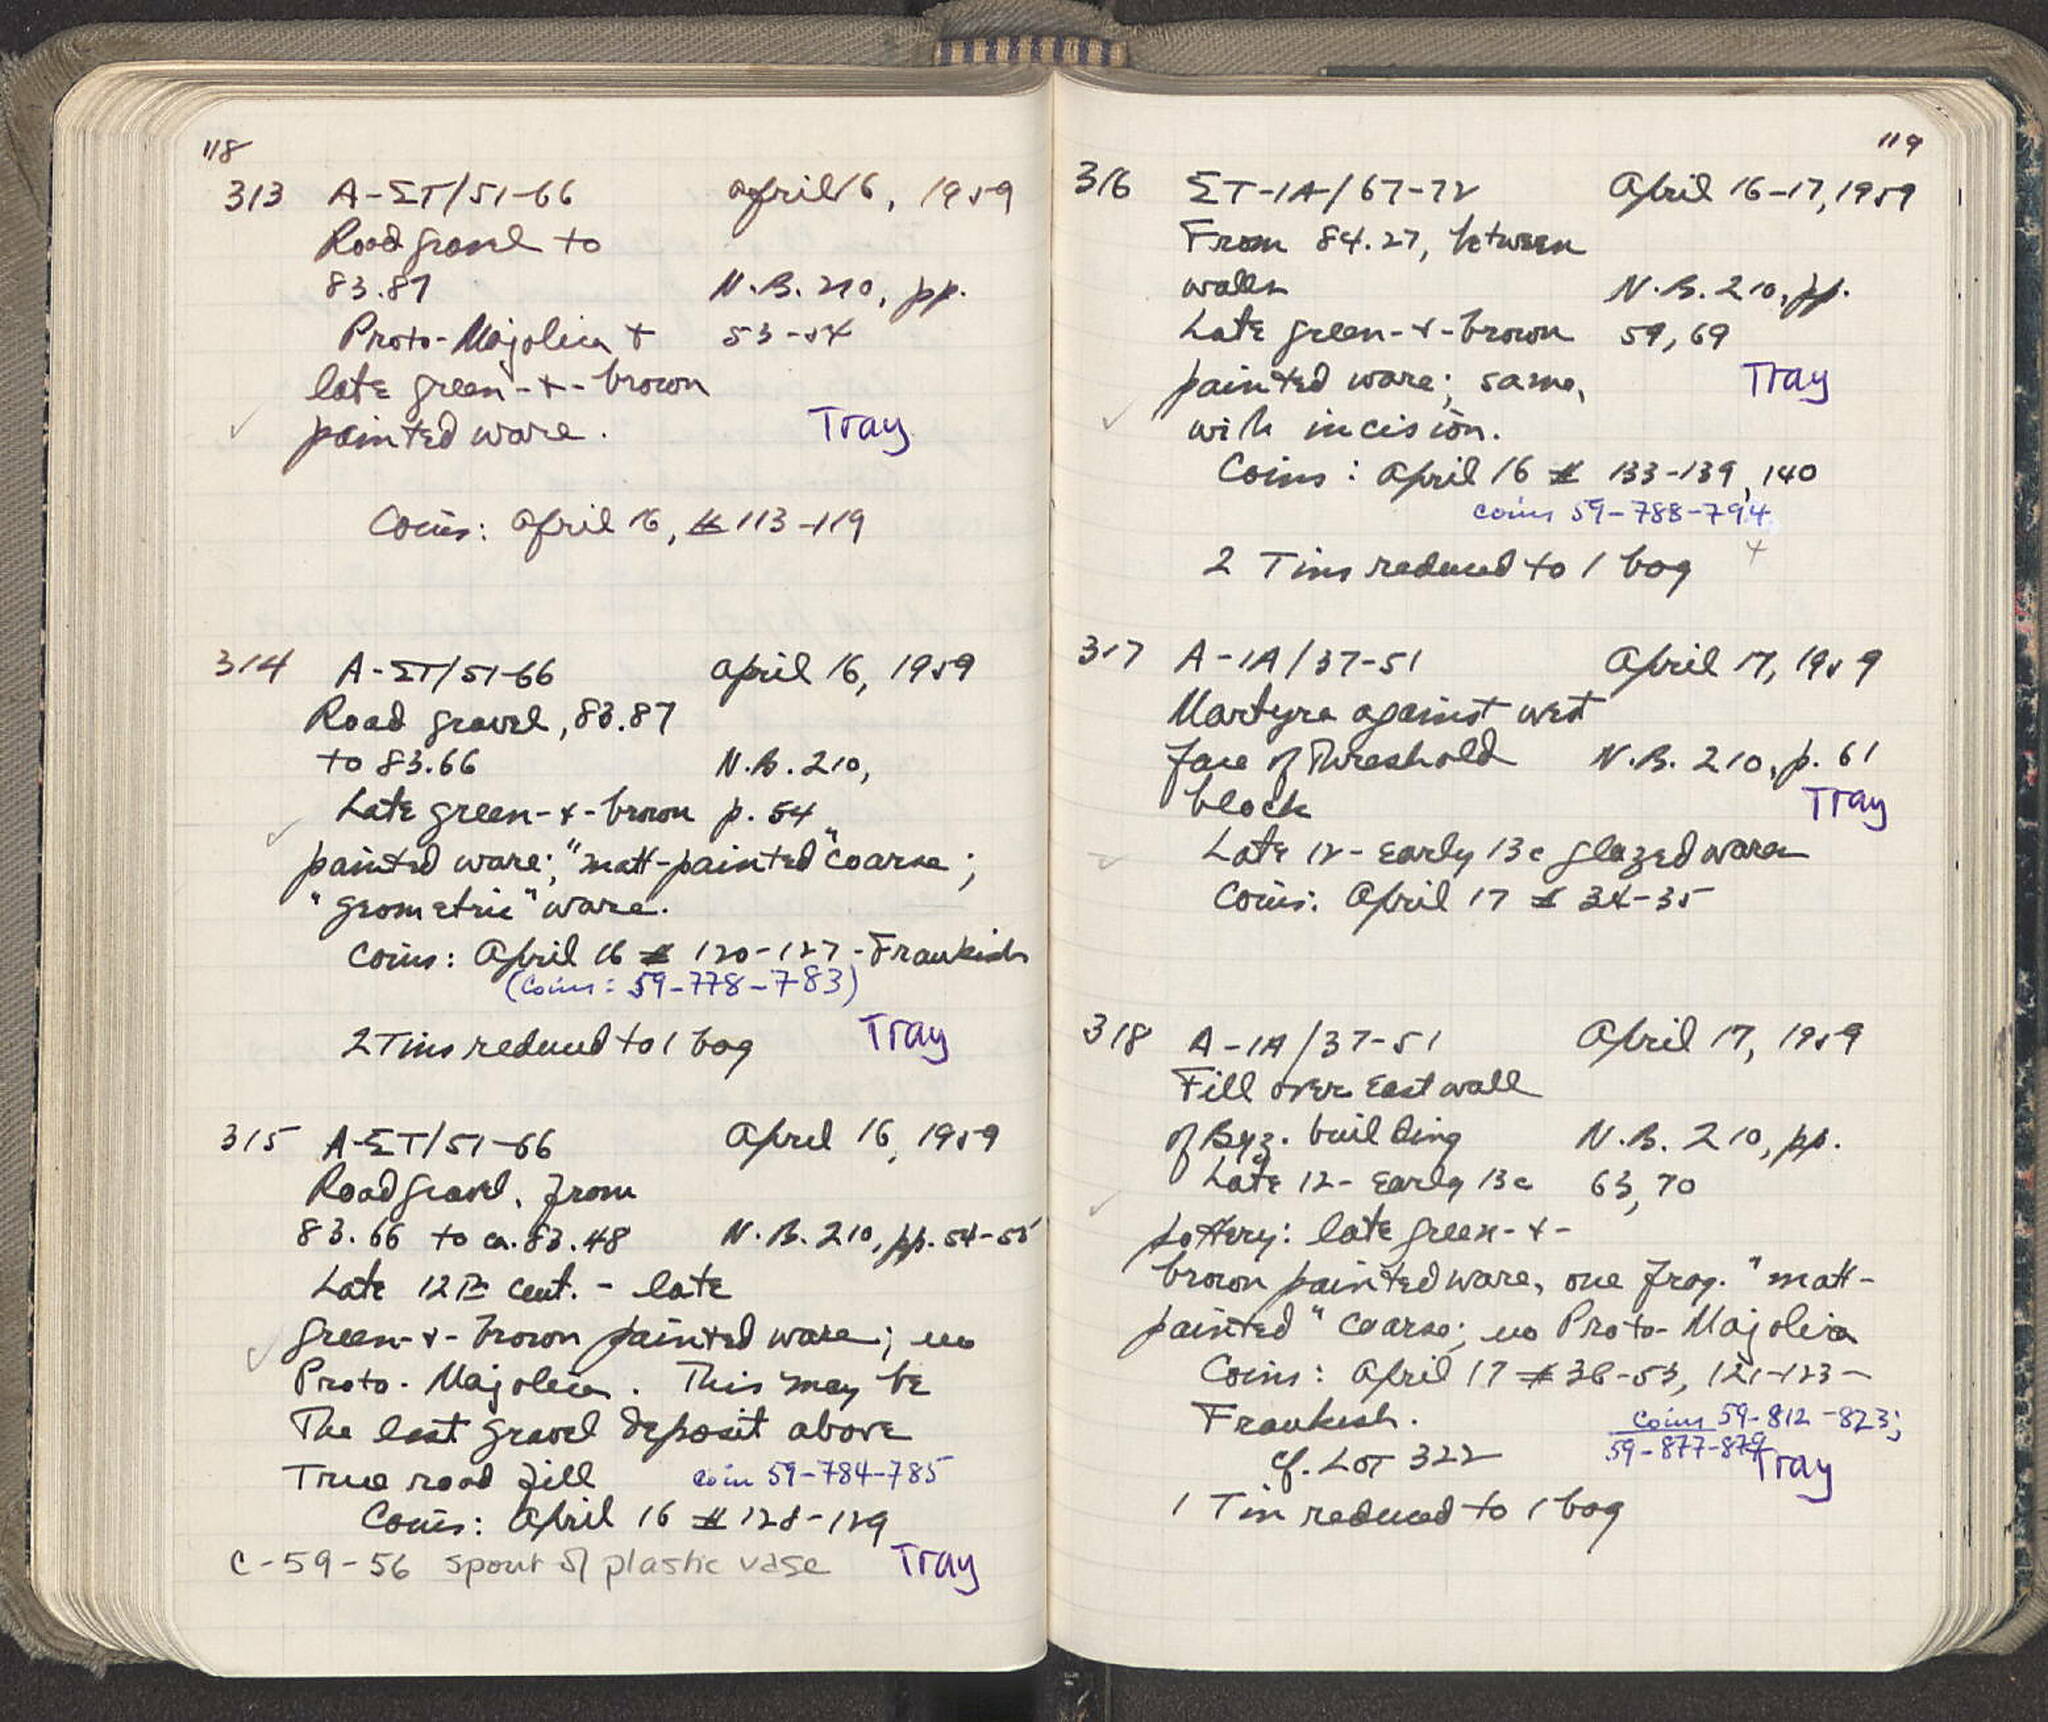 118
313 A-ΣT/51-66 April 16, 1959
Road gravel to
83.87 N.B. 210, pp.
Proto-Majolica + 53-54
late green-+-brown
painted ware. Tray
Coins: April 16, # 113-119
314 A-ΣT/51-66 April 16, 1959
Road gravel, 83.87
to 83.66 N.B. 210,
Late green-+-brown p. 54
painted ware; "matt-painted" coarse;
"geometric" ware.
Coins: April 16 # 120-127 - Frankish
(Coins: 59-778-783)
2 Tins reduced to 1 bag Tray
315 A-ΣT/51-66 April 16, 1959
Road gravel, from
83.66 to ca. 83.48 N.B. 210, pp. 54-55
Late 12th cent. - late
green-+-brown painted ware; no
Proto-Majolica. This may be
The last gravel deposit above
True road fill coin 59-784-785
Coins: April 16 # 128-129
C-59-56 spout of plastic vase Tray
119
316 ΣT-IA/67-72 April 16-17, 1959
From 84.27, between
walls N.B. 210, pp.
Late green-+-brown 59, 69
painted ware; same, Tray
with incision.
Coins: April 16 # 133-139, 140
coins 59-788-794
+
2 Tins reduced to 1 bag
317 A-IA/37-51 April 17, 1959
Martyra against west
face of Threshold N.B. 210, p. 61
block Tray
Late 12 - Early 13c glazed wares
Coins: April 17 # 34-35
318 A-IA/37-51 April 17, 1959
Fill over East wall
of Byz. building N.B. 210, pp.
Late 12 - Early 13c 63, 70
pottery: late green-+-
brown painted ware, one frag. "matt-
painted" coarse; no Proto-Majolica
Coins: April 17 # 36-53, 121-123 -
Frankish. coins 59-812-823;
59-877-879
cf. Lot 322 Tray
1 Tin reduced to 1 bag